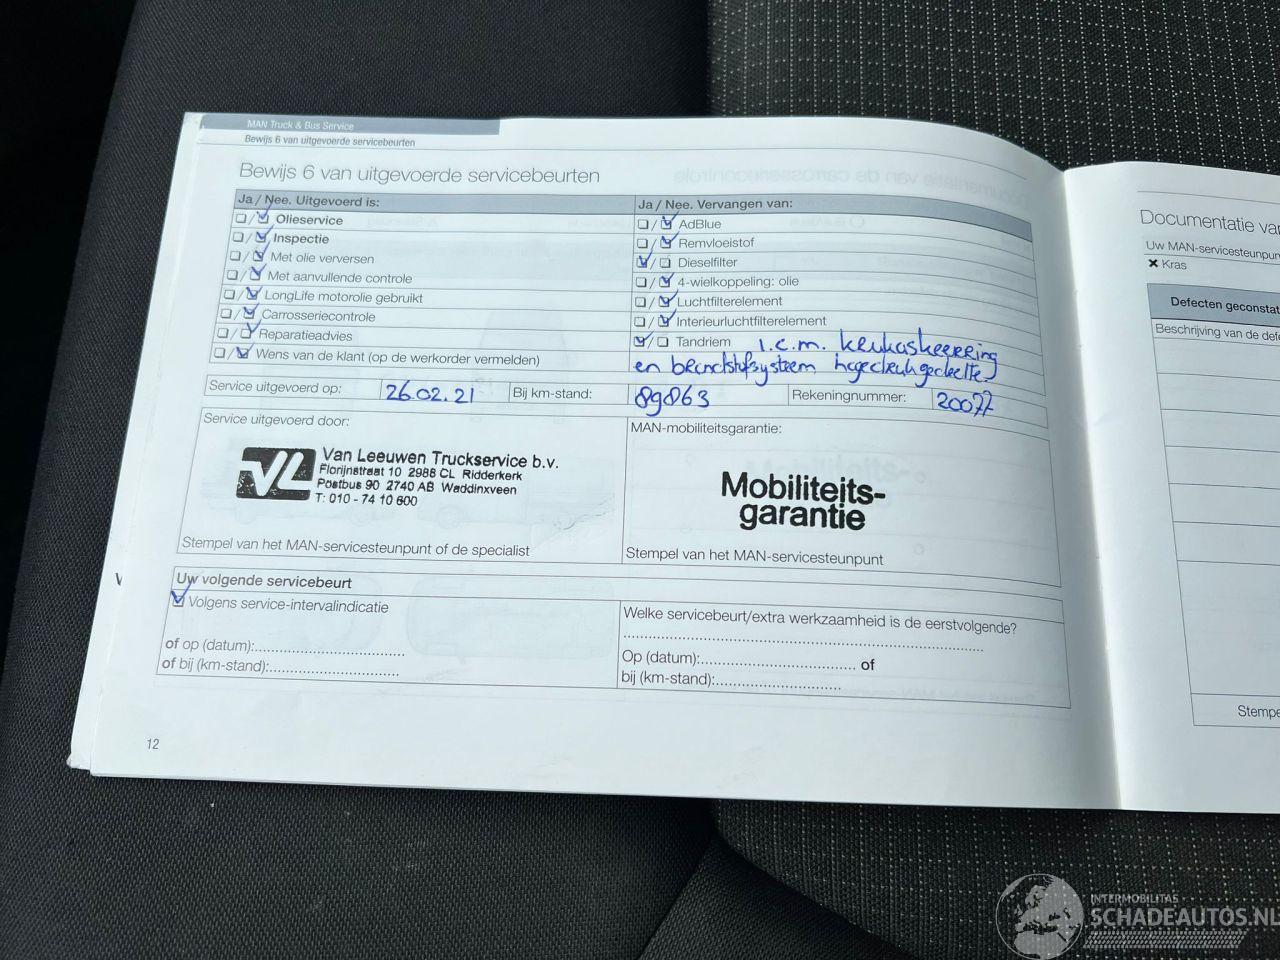 MAN Truck & Bus Service
Bewijs 6 van uitgevoerde servicebeurten
Bewijs 6 van uitgevoerde servicebeurten
Ja / Nee. Uitgevoerd is:
Olieservice
Inspectie
Met olie verversen
Met aanvullende controle
LongLife motorolie gebruikt
Carrosseriecontrole
Reparatieadvies
Wens van de klant (op de werkorder vermelden)
Ja / Nee. Vervangen van:
AdBlue
Remvloeistof
Dieselfilter
4-wielkoppeling: olie
Luchtfilterelement
Interieurluchtfilterelement
Tandriem i.c.m. krukaskeerring
en brandstofsysteem hogedruk gedeelte.
Service uitgevoerd op: 26.02.21 Bij km-stand: 89863 Rekeningnummer: 20077
Service uitgevoerd door:
VL
Van Leeuwen Truckservice b.v.
Florijnstraat 10 2988 CL Ridderkerk
Postbus 90 2740 AB Waddinxveen
T: 010 - 74 10 600
Stempel van het MAN-servicesteunpunt of de specialist
MAN-mobiliteitsgarantie:
Mobiliteits-
garantie
Stempel van het MAN-servicesteunpunt
Uw volgende servicebeurt
Volgens service-intervalindicatie
of op (datum):
of bij (km-stand):
Welke servicebeurt/extra werkzaamheid is de eerstvolgende?
Op (datum): of
bij (km-stand):
12
Documentatie va
Uw MAN-servicesteunpun
Kras
Defecten geconstat
Beschrijving van de defe
Stempe
INTERMOBILITAS
SCHADEAUTOS.NL